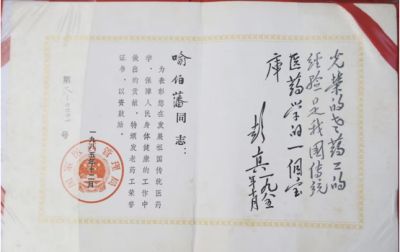 光荣的老药工的
经验是我国传统
医药学的一个宝
库
彭真
喻伯藩同志：
为表彰您在发展祖国传统医药
学、保障人民身体健康的工作中
做出的贡献，特颁发老药工荣誉
证书，以资鼓励。
国家医药管理局
一九八五年十二月